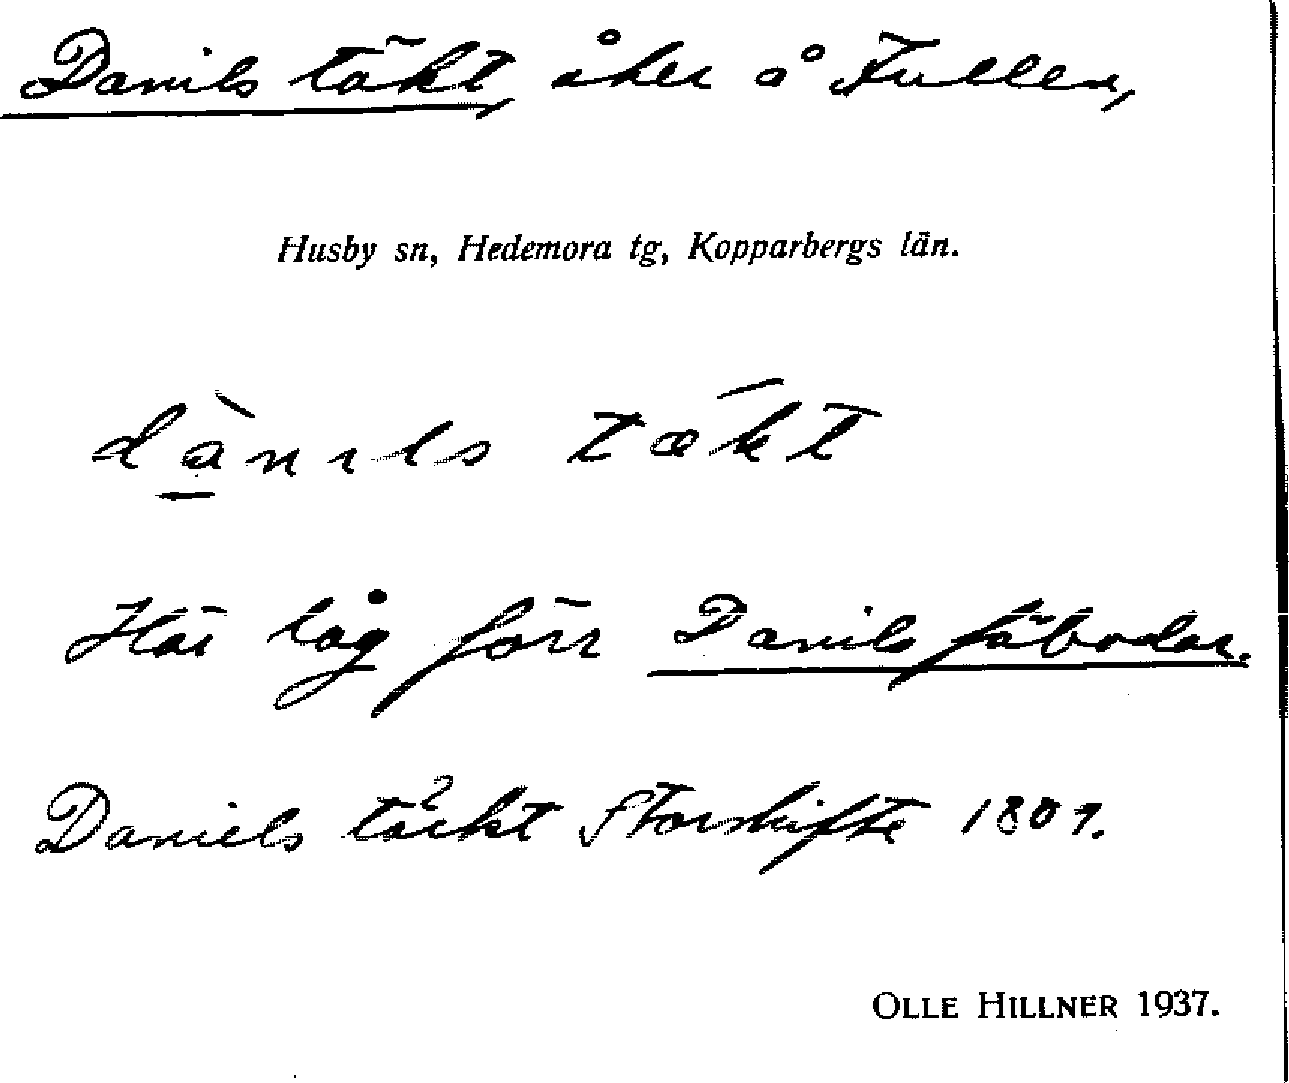 Danils täkt, åker å Fullen,
Husby sn, Hedemora tg, Kopparbergs län.
dànıls tækt
Här låg förr Danils fäbodar.
Daniels täckt Storskifte 1807.
OLLE HILLNER 1937.